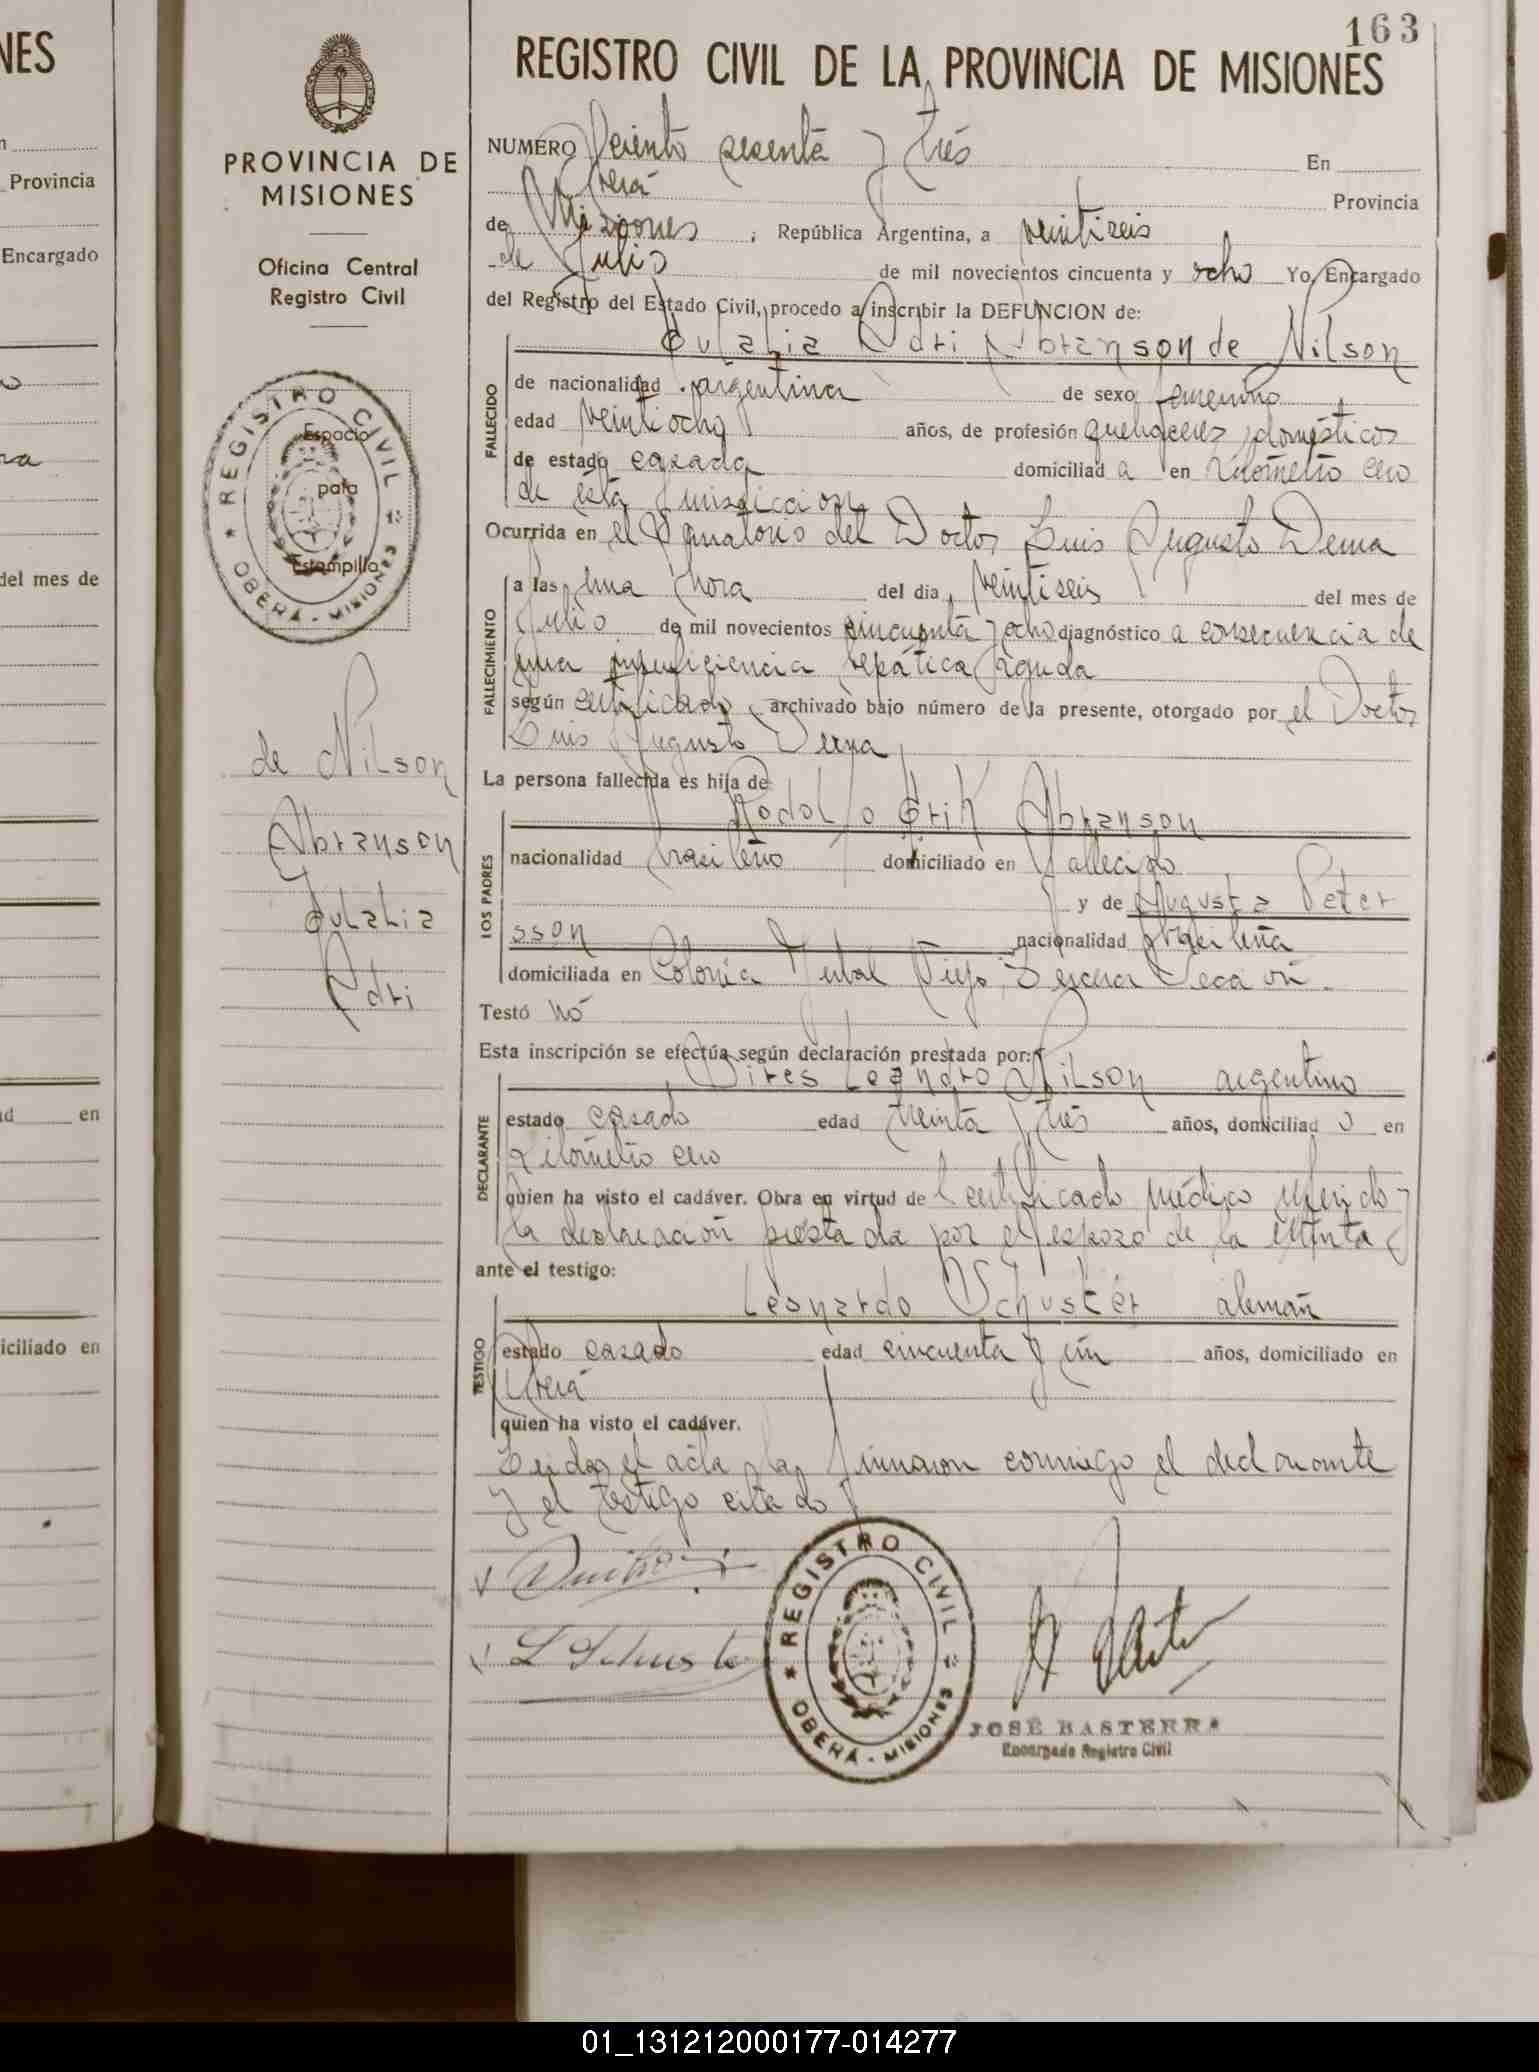 163
REGISTRO CIVIL DE LA PROVINCIA DE MISIONES
PROVINCIA DE
MISIONES
Oficina Central
Registro Civil
REGISTRO CIVIL
Espacio
para
Estampilla
OBERÁ - MISIONES
de Nilson
Abranson
Eulalia
Edri
NUMERO ciento sesenta y trés En
Oberá Provincia
de Misiones ; República Argentina, a veintiseis
de Julio de mil novecientos cincuenta y ocho Yo, Encargado
del Registro del Estado Civil, procedo a inscribir la DEFUNCION de:
Eulalia Edri Abranson de Nilson
FALLECIDO
de nacionalidad argentina de sexo femenino
edad veintiocho años, de profesión quehaceres domésticos
de estado casada domiciliad a en Kilómetro cero
de esta jurisdiccion
Ocurrida en el Sanatorio del Doctor Luis Augusto Derna
FALLECIMIENTO
a las una hora del dia veintiseis del mes de
Julio de mil novecientos cincuenta y ocho diagnóstico a consecuencia de
una insuficiencia hepática aguda
según certificado archivado bajo número de la presente, otorgado por el Doctor
Luis Augusto Derna
La persona fallecida es hija de
LOS PADRES
Rodolfo Erik Abranson
nacionalidad brasileño domiciliado en fallecido
y de Augusta Peter
sson nacionalidad brasileña
domiciliada en Colonia Yerbal Viejo, Tercera Sección.
Testó nó
Esta inscripción se efectúa según declaración prestada por:
DECLARANTE
Leandro Nilson argentino
estado casado edad treinta y trés años, domiciliad o en
Kilómetro cero
quien ha visto el cadáver. Obra en virtud de l certificado médico referido y
la declaración prestada por el esposo de la extinta
ante el testigo:
TESTIGO
Leonardo Schuster alemán
estado casado edad cincuenta y un años, domiciliado en
Oberá
quien ha visto el cadáver.
Leida el acta la firmaron conmigo el declarante
y el testigo citado
L Schuster
REGISTRO CIVIL
OBERÁ - MISIONES
JOSÉ BASTERRA
Encargado Registro Civil
NES
Provincia
Encargado
del mes de
en
iciliado en
01_131212000177-014277